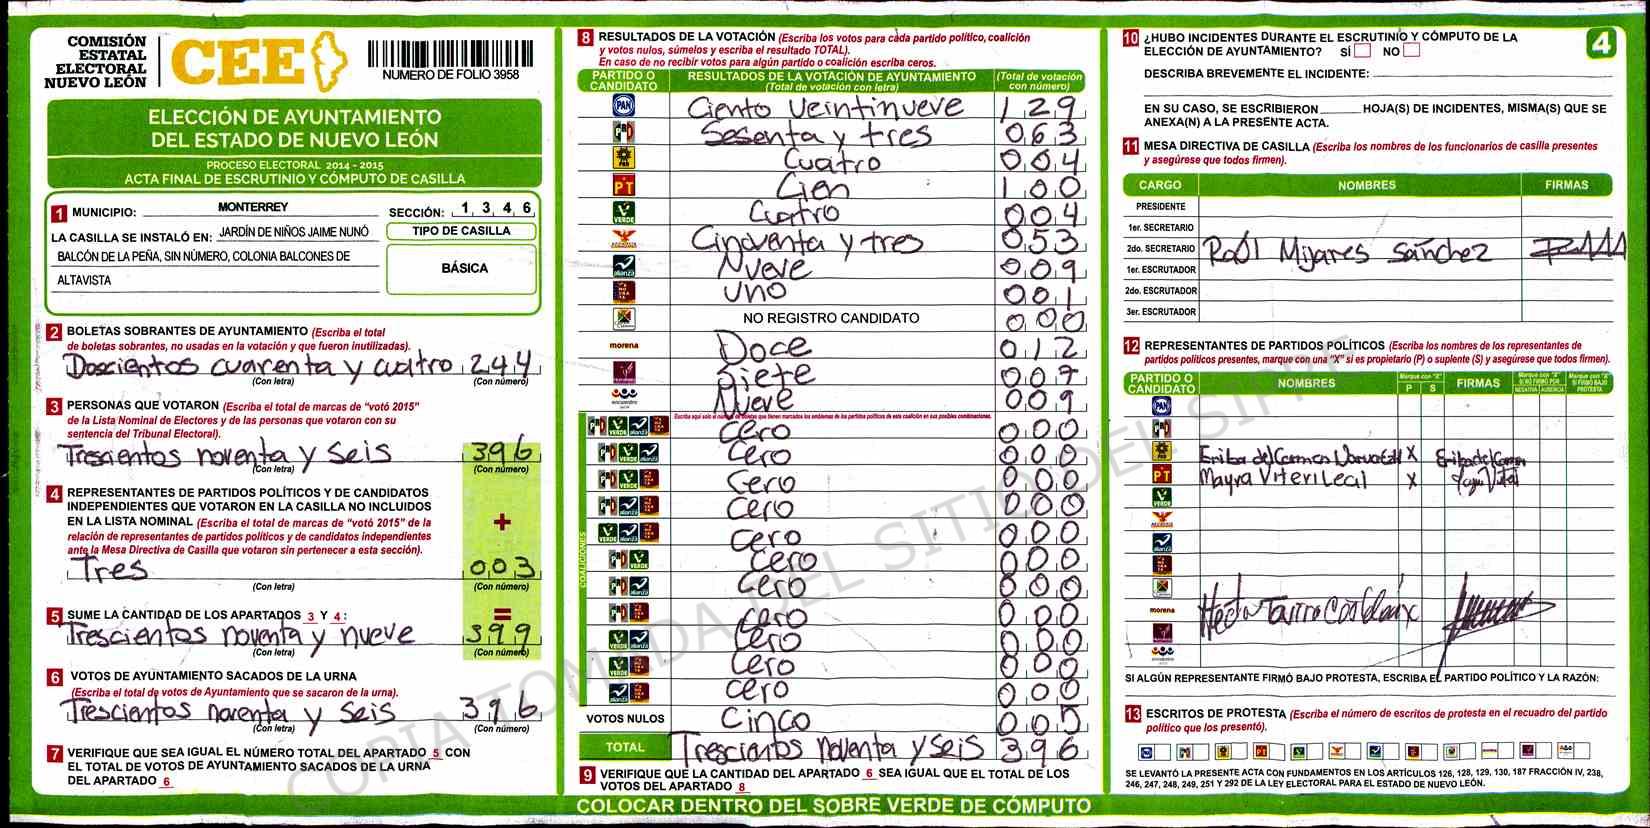 COMISIÓN
ESTATAL
ELECTORAL
NUEVO LEÓN
CEE
NUMERO DE FOLIO 3958
ELECCIÓN DE AYUNTAMIENTO
DEL ESTADO DE NUEVO LEÓN
PROCESO ELECTORAL 2014 - 2015
ACTA FINAL DE ESCRUTINIO Y CÓMPUTO DE CASILLA
1 MUNICIPIO: MONTERREY SECCIÓN: 1, 3, 4, 6
LA CASILLA SE INSTALÓ EN: JARDÍN DE NIÑOS JAIME NUNÓ
BALCÓN DE LA PEÑA, SIN NÚMERO, COLONIA BALCONES DE
ALTAVISTA
TIPO DE CASILLA
BÁSICA
2 BOLETAS SOBRANTES DE AYUNTAMIENTO (Escriba el total
de boletas sobrantes, no usadas en la votación y que fueron inutilizadas).
Doscientos cuarenta y cuatro 244
(Con letra) (Con número)
3 PERSONAS QUE VOTARON (Escriba el total de marcas de “votó 2015”
de la Lista Nominal de Electores y de las personas que votaron con su
sentencia del Tribunal Electoral).
Trescientos noventa y seis 396
(Con letra) (Con número)
4 REPRESENTANTES DE PARTIDOS POLÍTICOS Y DE CANDIDATOS
INDEPENDIENTES QUE VOTARON EN LA CASILLA NO INCLUIDOS
EN LA LISTA NOMINAL (Escriba el total de marcas de “votó 2015” de la
relación de representantes de partidos políticos y de candidatos independientes
ante la Mesa Directiva de Casilla que votaron sin pertenecer a esta sección).
+
Tres 003
(Con letra) (Con número)
5 SUME LA CANTIDAD DE LOS APARTADOS 3 Y 4: =
Trescientos noventa y nueve 399
(Con letra) (Con número)
6 VOTOS DE AYUNTAMIENTO SACADOS DE LA URNA
(Escriba el total de votos de Ayuntamiento que se sacaron de la urna).
Trescientos noventa y seis 396
(Con letra) (Con número)
7 VERIFIQUE QUE SEA IGUAL EL NÚMERO TOTAL DEL APARTADO 5 CON
EL TOTAL DE VOTOS DE AYUNTAMIENTO SACADOS DE LA URNA
DEL APARTADO 6
8 RESULTADOS DE LA VOTACIÓN (Escriba los votos para cada partido político, coalición
y votos nulos, súmelos y escriba el resultado TOTAL).
En caso de no recibir votos para algún partido o coalición escriba ceros.
PARTIDO O CANDIDATO RESULTADOS DE LA VOTACIÓN DE AYUNTAMIENTO (Total de votación con letra) (Total de votación con número)
PAN Ciento veintinueve 129
PRD Sesenta y tres 063
PRD Cuatro 004
PT Cien 100
VERDE Cuatro 004
Cincuenta y tres 053
alianza Nueve 009
Uno 001
NO REGISTRO CANDIDATO 000
morena Doce 012
Siete 007
encuentro Nueve 009
Escriba aquí solo el número de boletas que tienen marcados los emblemas de los partidos políticos de esta coalición en sus posibles combinaciones.
COALICIONES
Cero 000
Cero 000
Cero 000
Cero 000
Cero 000
Cero 000
Cero 000
Cero 000
Cero 000
Cero 000
Cero 000
VOTOS NULOS Cinco 005
TOTAL Trescientos noventa y seis 396
9 VERIFIQUE QUE LA CANTIDAD DEL APARTADO 6 SEA IGUAL QUE EL TOTAL DE LOS
VOTOS DEL APARTADO 8
COLOCAR DENTRO DEL SOBRE VERDE DE CÓMPUTO
10 ¿HUBO INCIDENTES DURANTE EL ESCRUTINIO Y CÓMPUTO DE LA
ELECCIÓN DE AYUNTAMIENTO? SÍ NO
4
DESCRIBA BREVEMENTE EL INCIDENTE:
EN SU CASO, SE ESCRIBIERON HOJA(S) DE INCIDENTES, MISMA(S) QUE SE
ANEXA(N) A LA PRESENTE ACTA.
11 MESA DIRECTIVA DE CASILLA (Escriba los nombres de los funcionarios de casilla presentes
y asegúrese que todos firmen).
CARGO NOMBRES FIRMAS
PRESIDENTE
1er. SECRETARIO
2do. SECRETARIO Raúl Mijares Sánchez
1er. ESCRUTADOR
2do. ESCRUTADOR
3er. ESCRUTADOR
12 REPRESENTANTES DE PARTIDOS POLÍTICOS (Escriba los nombres de los representantes de
partidos políticos presentes, marque con una “X” si es propietario (P) o suplente (S) y asegúrese que todos firmen).
PARTIDO O CANDIDATO NOMBRES Marque con "X" P S FIRMAS Marque con "X" SI NO FIRMÓ POR NEGATIVA AUSENCIA Marque con "X" SI FIRMÓ BAJO PROTESTA
PAN
PRD del Carmen X
PT Mayra Viteri Leal X
VERDE
alianza
morena
encuentro
SI ALGÚN REPRESENTANTE FIRMÓ BAJO PROTESTA, ESCRIBA EL PARTIDO POLÍTICO Y LA RAZÓN:
13 ESCRITOS DE PROTESTA (Escriba el número de escritos de protesta en el recuadro del partido
político que los presentó).
SE LEVANTÓ LA PRESENTE ACTA CON FUNDAMENTOS EN LOS ARTÍCULOS 126, 128, 129, 130, 187 FRACCIÓN IV, 238,
246, 247, 248, 249, 251 Y 292 DE LA LEY ELECTORAL PARA EL ESTADO DE NUEVO LEÓN.
COPIA TOMADA DEL SITIO DEL SIPRE